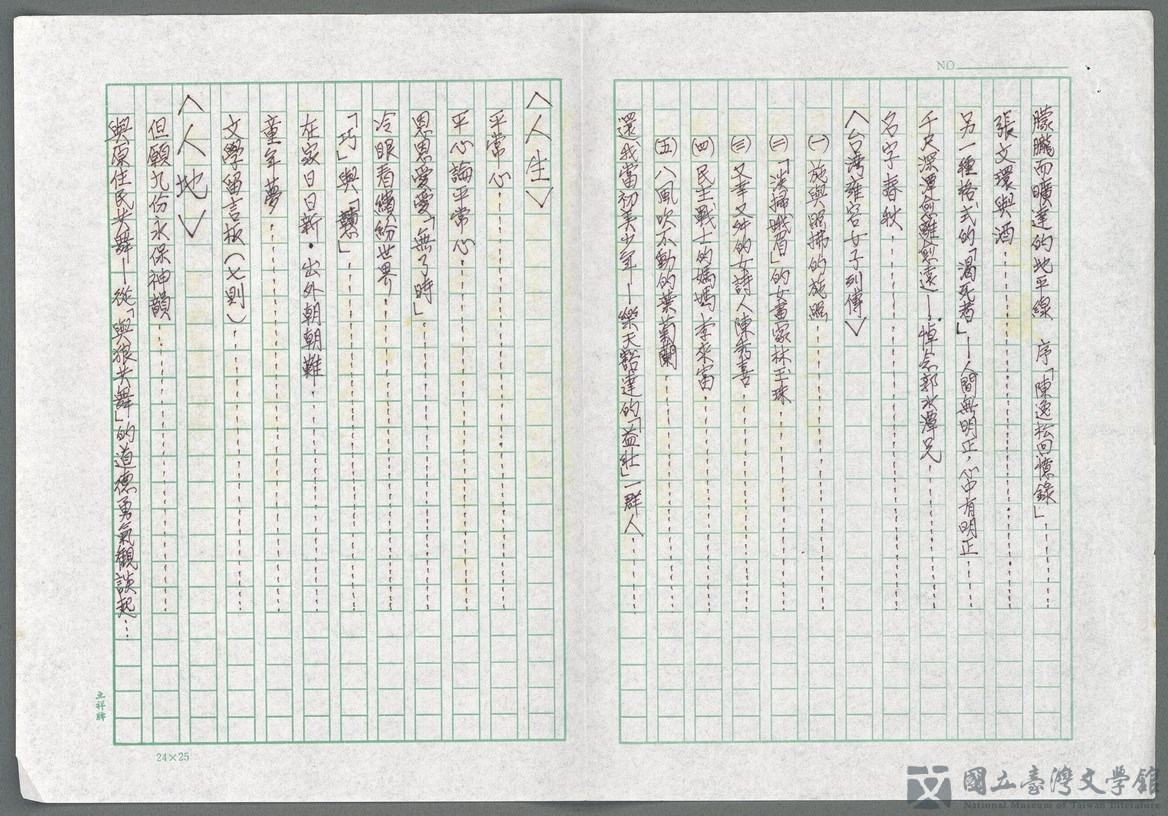 NO
朦朧而曠達的地平線　序「陳逸松回憶錄」
張文環與酒
另一種格式的「渴死者」—人間無明正，心中有明正
千尺深潭愈離愈遠—悼念郭水潭兄
名字春秋
〈台湾雅容女子列傳〉
㈠ 施與照拂的施照
㈡「淡掃蛾眉」的女畫家林玉珠
㈢ 又幸又舛的女詩人陳秀喜
㈣ 民主戰士的媽媽李來富
㈤ 八風吹不動的葉菊蘭
還我當初美少年—樂天豁達的「益壯」一群人
〈人生〉
平常心
平心論平常心
恩恩愛愛「無了時」
冷眼看繽紛世界
「巧」與「戇」
在家日日新．出外朝朝難
童年夢
文學留言板（七則）
〈人地〉
但願九份永保神韻
與原住民共舞—從「與狼共舞」的道德勇氣觀談起
立祥牌
24×25
國立臺灣文學館
National Museum of Taiwan Literature